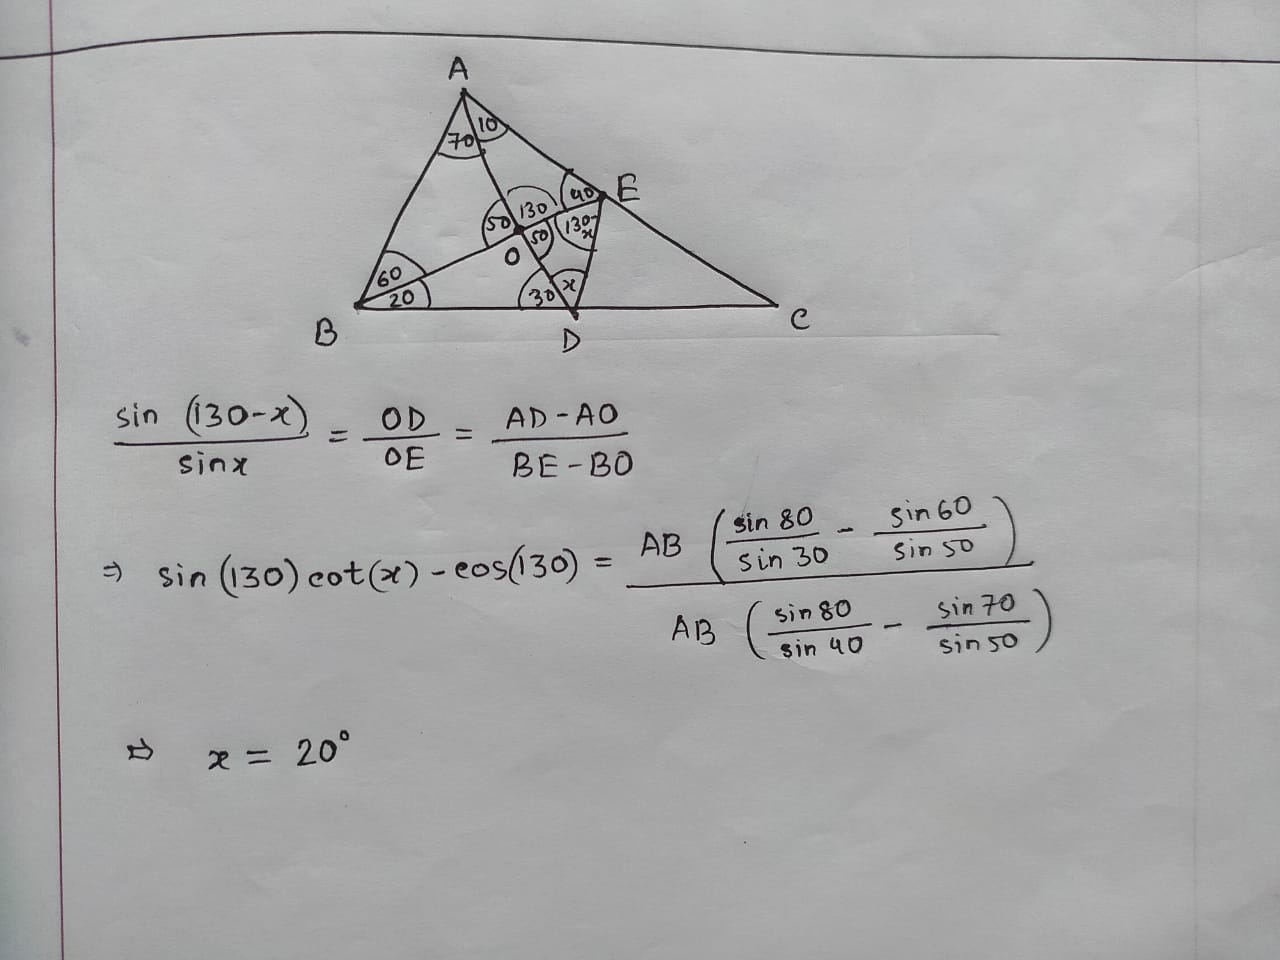 A
10
70
E
40
130
50
50
130-x
O
60
20
30
x
B
D
C
sin (130-x) / sin x = OD / OE = AD - AO / BE - BO
⇒ sin (130) cot(x) - cos(130) = AB (sin 80 / sin 30 - sin 60 / sin 50) / AB (sin 80 / sin 40 - sin 70 / sin 50)
⇒ x = 20°